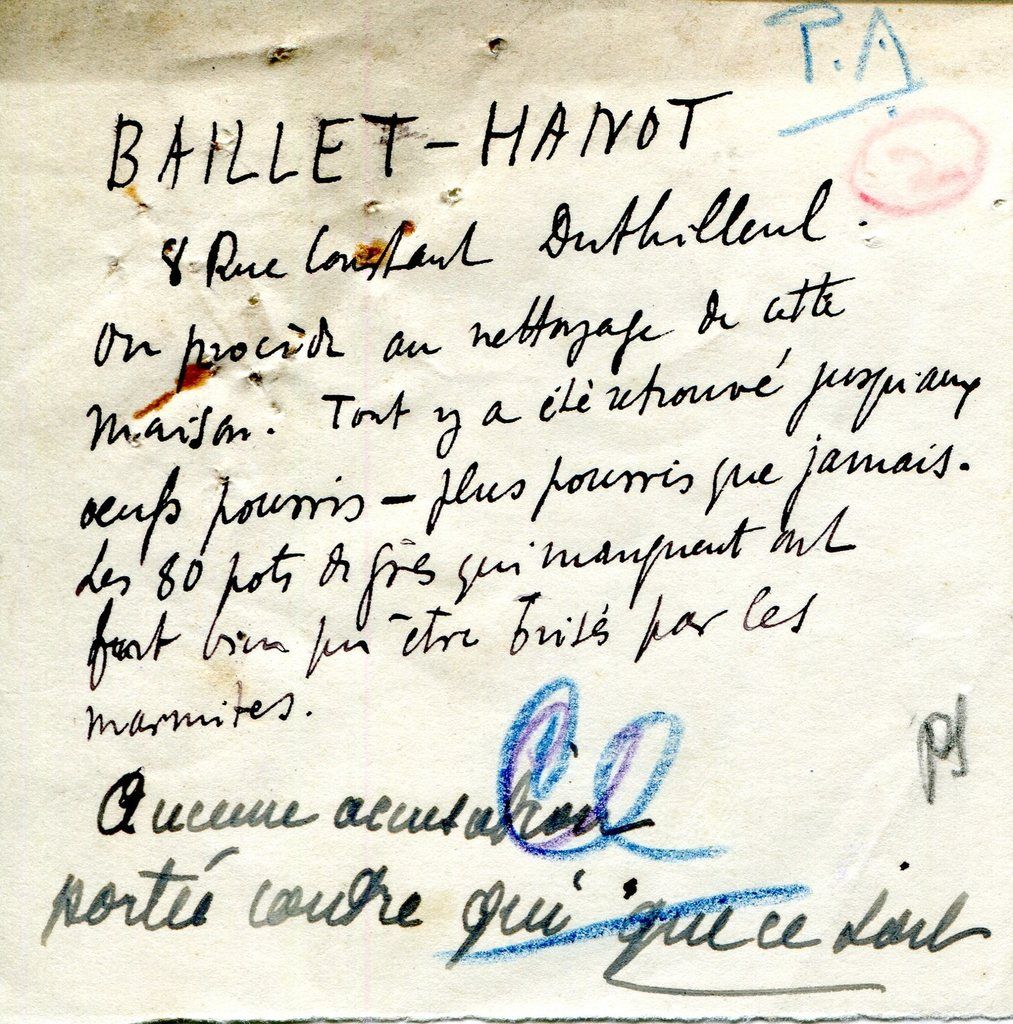 P.A
BAILLET-HANOT
8 Rue Constant Duthilleul.
On procède au nettoyage de cette
maison. Tout y a été retrouvé jusqu'aux
oeufs pourris - plus pourris que jamais.
Les 80 pots de grès qui manquent ont
fort bien pu être brisés par les
marmites.
Aucune accusation
portée contre qui que ce soit